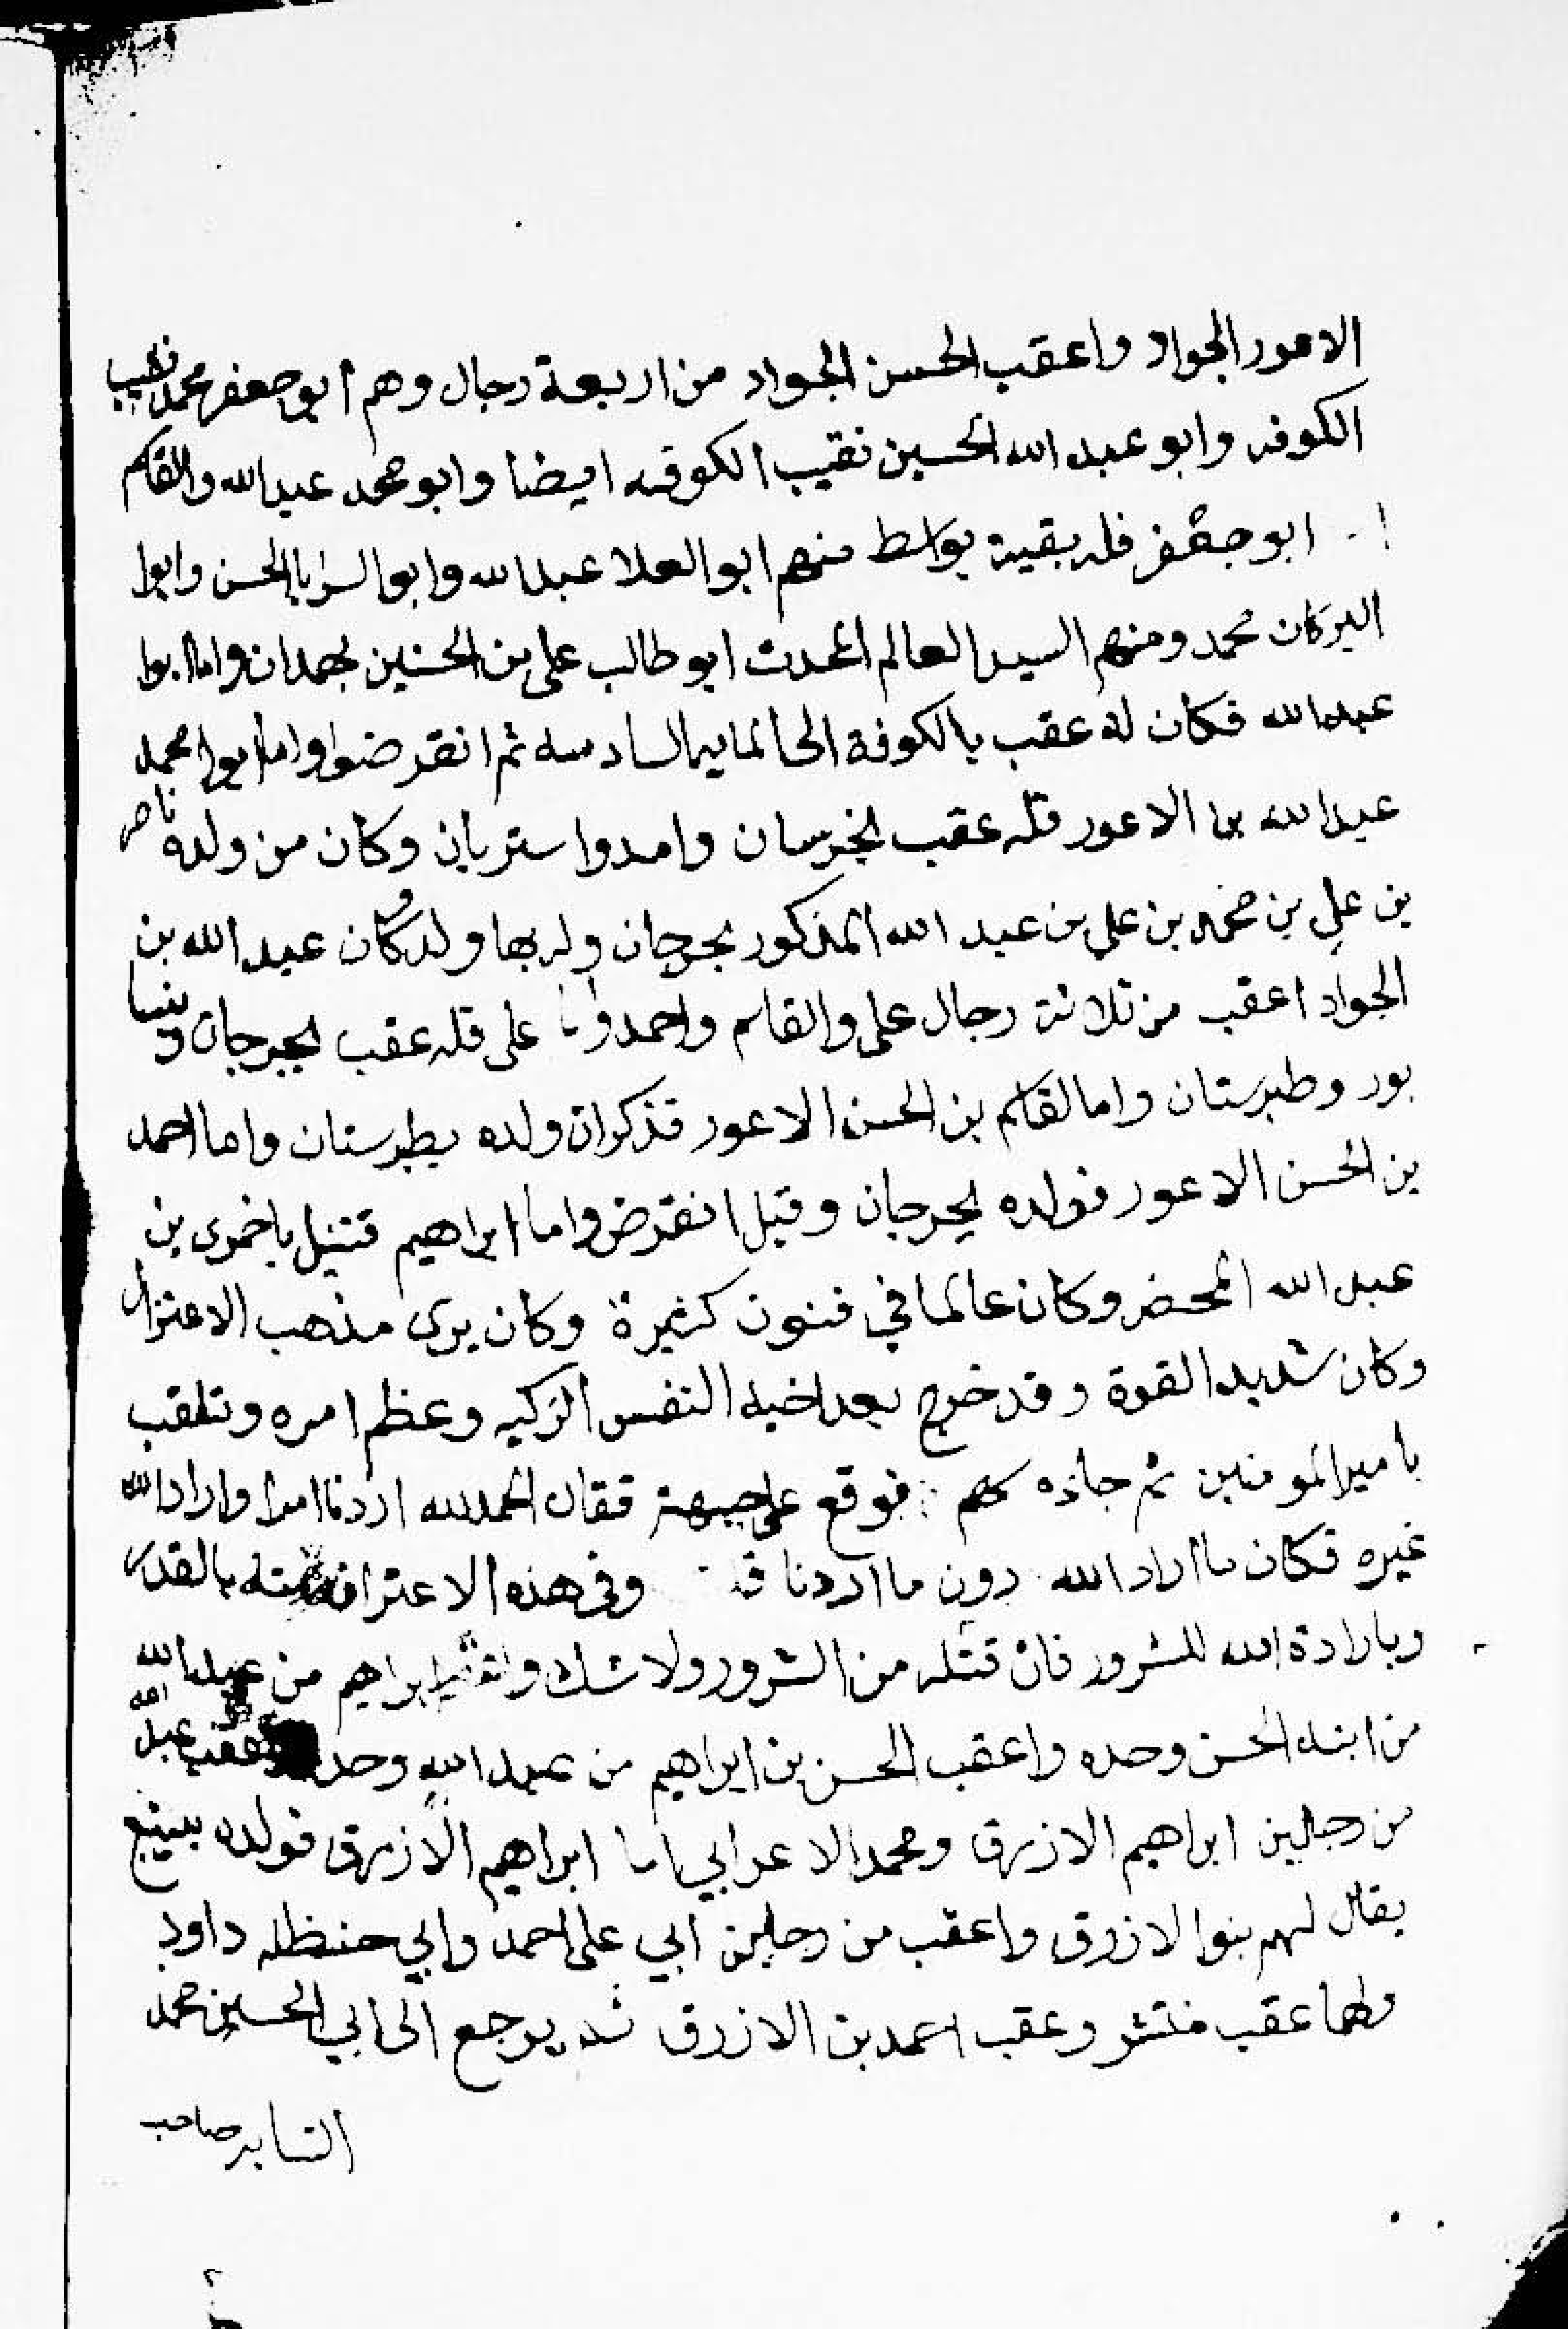 الاعور الجواد واعقب الحسن الجواد من اربعة رجال وهم ابو جعفر محمد نقيب
الكوفه وابو عبد الله الحسين نقيب الكوفه ايضا وابو محمد عبدالله والقاسم
ابو جعفر فله بقية بواسط منهم ابو العلا عبدالله وابو السرايا الحسن وابوا
البركات محمد ومنهم السيد العالم المحدث ابو طالب على بن الحسين بهمدان واما ابوا
عبدالله فكان له عقب بالكوفة الى المايه السادسه ثم انقرضوا واما ابوا محمد
عبدالله بن الاعور فله عقب بخرسان وكان من ولده ناصر
بن علي بن بن على بن عبد الله المذكور بجرجان وله بها ولد وكان عبد الله بن
الجواد اعقب من ثلاثة رجال على والقاسم واحمد واما على فله عقب بجرجان ونيسا
بور وطبرستان واما القاسم بن الحسن الاعور فذكر ان ولده بطبرستان واما احمد
بن الحسن الاعور فولده بجرجان وقيل انقرض واما ابراهيم قتيل باخمرى بن
عبد الله المحضر وكان عالما في فنون كثيرة وكان يرى مذهب الاعتزال
وكان شديد القوة وقد خرج بعد اخيه النفس الزكيه وعظم امره وتلقب
با مير المومنين ثم جاءه سهم فوقع على جبهته فقال الحمدلله اردنا امرا واراد الله
غيره فكان ما اراد الله دون ما اردنا وفى هذه الاعتراف منه بالقدر
وبارادة الله للشرور فان قتله من الشرور ولا شك ابراهيم من عبدالله
من ابنه الحسن وحده واعقب الحسن بن ابراهيم من عبد الله وحده واعقب عبد الله
من رجلين ابراهيم الازرق ومحمد الاعرابي اما ابراهيم الازرق فولده بينبع
يقال لهم بنوا الازرق واعقب من رجلين ابي على احمد وابي حنظله داود
ولهما عقب منتشر وعقب احمد بن الازرق يرجع الى ابي الحسين محمد
صاحب